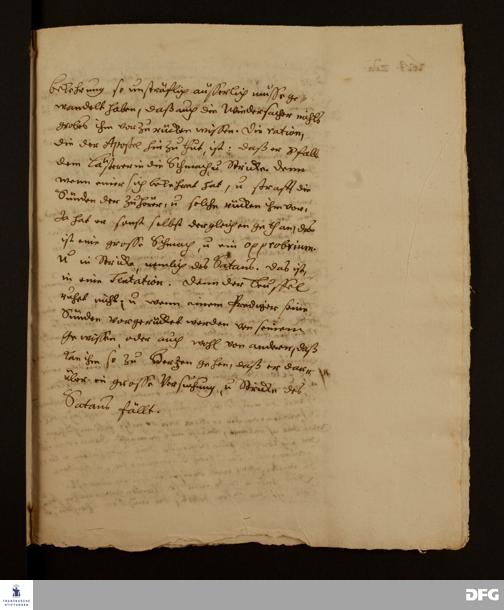 bekehrung so unsträfflich äusserlich müsse ge-
wandelt haben, daß auch die Widersacher nichts
grobes ihm vorzurücken wissen. Die ration,
die der Apostel hinzu thut, ist: daß er falle
dem Lästerer in die Schmach u Stricke. Denn
wenn einer sich bekehret hat, u strafft die
Sünden der Zuhörer, u solche rücken ihm vor,
da hat er sonst selbst dergleichen gethan, das
ist eine grosse Schmach, u ein opprobrium.
U in Stricke, nemlich des Satans. Das ist,
in eine Tentation. Denn der Teuffel
ruhet nicht, u wenn einem Prediger seine
Sünden vorgerücket werden von seinem
Gewissen, oder auch wohl von andern, daß
kan ihm so zu Hertzen gehen, daß er dar-
über in grosse Versuchung u Stricke des
Satans fällt.
FRANCKESCHE
STIFTUNGEN
DFG